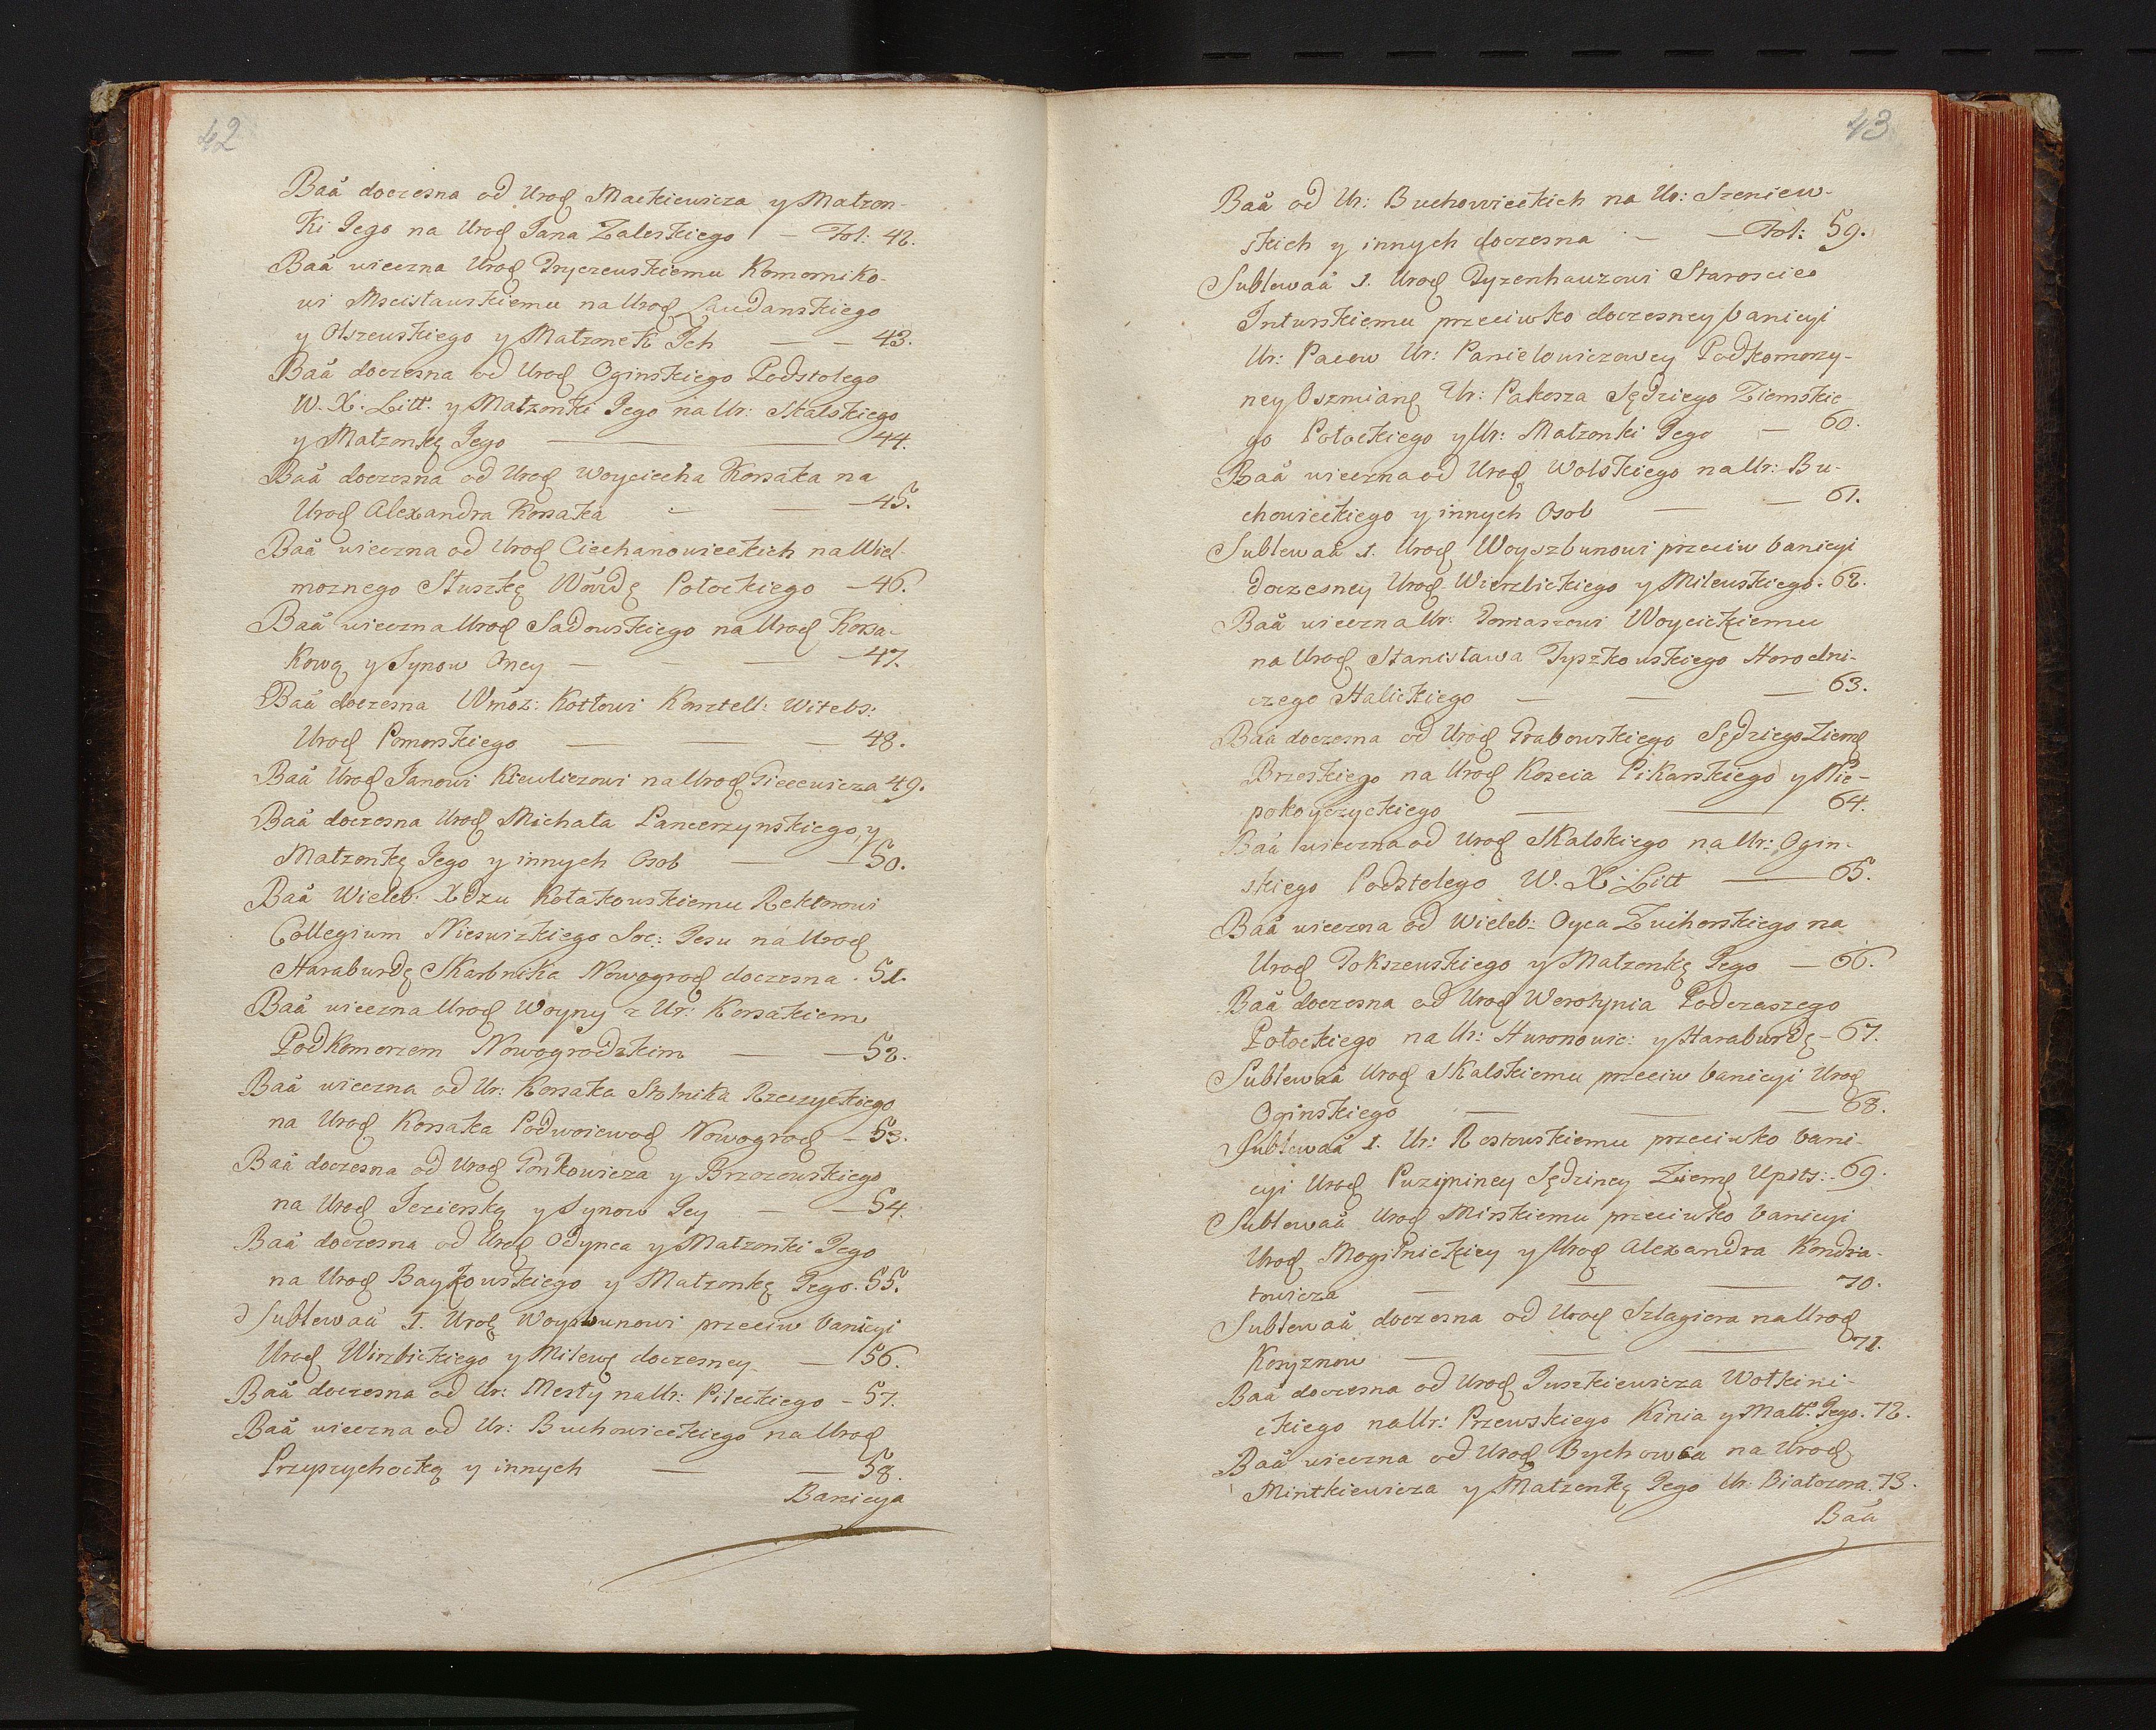 42
Baa doczesna od Urod Mackiewicza y Małzon-
ki Jego na Urod Jana Zaleskiego — Fol: 42.
Baa wieczna Urod Dryczewskiemu Komorniko-
wi Mscisławskiemu na Urod Laudanskiego
y Olszewskiego y Małzonek Jch — — 43.
Baa doczesna od Urod Oginskiego Podstolego
W. X. Litt. y Małzonki Jego na Ur: Skalskiego
y Małzonkę Jego — 44.
Baa doczesna od Urod Woyciecha Korsaka na
Urod Alexandra Korsaka — — 45.
Baa wieczna od Urod Ciechanowieckich na Wiel-
moznego Słuszkę Wdę Połockiego — 46.
Baa wieczna Urod Sadowskiego na Urod Korsa-
kową y Synow Oney — — — 47.
Baa doczesna Wmoz: Kotłowi Kasztell: Witebs:
Urod Pomorskiego — — — 48.
Baa Urod Janowi Kiewliczowi na Urod Giecewicza 49.
Baa doczesna Urod Michała Pancerzynskiego, y
Małzonkę Jego y innych Osob — — 50.
Baa Wieleb: Xdzu Kołakowskiemu Rektorowi
Collegium Nieswizkiego Soc: Jesu na Urod
Haraburdę Skarbnika Nowogrod doczesna . 51.
Baa wieczna Urod Woyny z Ur: Korsakiem
Podkomorzem Nowogrodzkim — — 52.
Baa wieczna od Ur: Korsaka Stolnika Rzeczyckiego
na Urod Korsaka Podwoiewod Nowogrod — 53.
Baa doczesna od Urod Ponkowicza y Brzozowskiego
na Urod Jezierską y Synow Jey — — 54.
Baa doczesna od Urod Odynca y Małzonki Jego
na Urod Baykowskiego y Małzonkę Jego. 55.
Sublewaa J. Urod Woyzbunowi przeciw banicyi
Urod Wirzbickiego y Milew doczesney — 56.
Baa doczesna od Ur: Mesły na Ur: Pileckiego — 57.
Baa wieczna od Ur: Buchowieckiego na Urod
Przypsychocką y innych — — 58.
Banicya
43
Baa od Ur: Buchowieckich na Ur: Szeniew-
skich y innych doczesna — — Fol: 59.
Sublewaa J. Urod Tyzenhauzowi Staroscie
Inturskiemu przeciwko doczesney banicyi
Ur: Pacow Ur: Pasielowiczowey Podkomorzy-
ney Oszmian Ur: Pakosza Sędziego Ziemskie-
go Połockiego y Ur: Małzonki Jego — 60.
Baa wieczna od Urod Wolskiego na Ur: Bu-
chowieckiego y innych Osob — — 61.
Sublewaa J. Urod Woyszbunowi przeciw banicyi
doczesney Urod Wierzbickiego y Milewskiego. 62.
Baa wieczna Ur: Tomaszowi Woycickiemu
na Urod Stanisława Tyszkowskiego Horodni-
czego Halickiego — — — 63.
Baa doczesna od Urod Grabowskiego Sędziego Ziem
Brzeskiego na Urod Koscia Pikarskiego y Nie-
pokoyczyckiego — — 64.
Baa wieczna od Urod Skalskiego na Ur: Ogin-
skiego Podstolego W. X. Litt — 65.
Baa wieczna od Wieleb: Oyca Zuchorskiego na
Urod Pokszewskiego y Małzonkę Jego — 66.
Baa doczesna od Urod Werotynia Podczaszego
Połockiego na Ur: Huronowic: y Haraburdę — 67.
Sublewaa Urod Skalskiemu przeciw banicyi Urod
Oginskiego — — — 68.
Sublewaa J. Ur: Rostowskiemu przeciwko bani-
cyi Urod Puzyniney Sędziney Ziem Upits: 69.
Sublewaa Urod Mirskiemu przeciwko banicyi
Urod Mogilnickiey y Urod Alexandra Kondra-
towicza — — — 70.
Sublewaa doczesna od Urod Szlagiera na Urod
Kosyznow — — — 71.
Baa doczesna od Urod Juszkiewicza Wołkini-
ckiego na Ur: Przewskiego Kinia y Małż. Jego. 72.
Baa wieczna od Urod Bychowca na Urod
Mintkiewicza y Małzonkę Jego Ur: Białozora. 73.
Baa